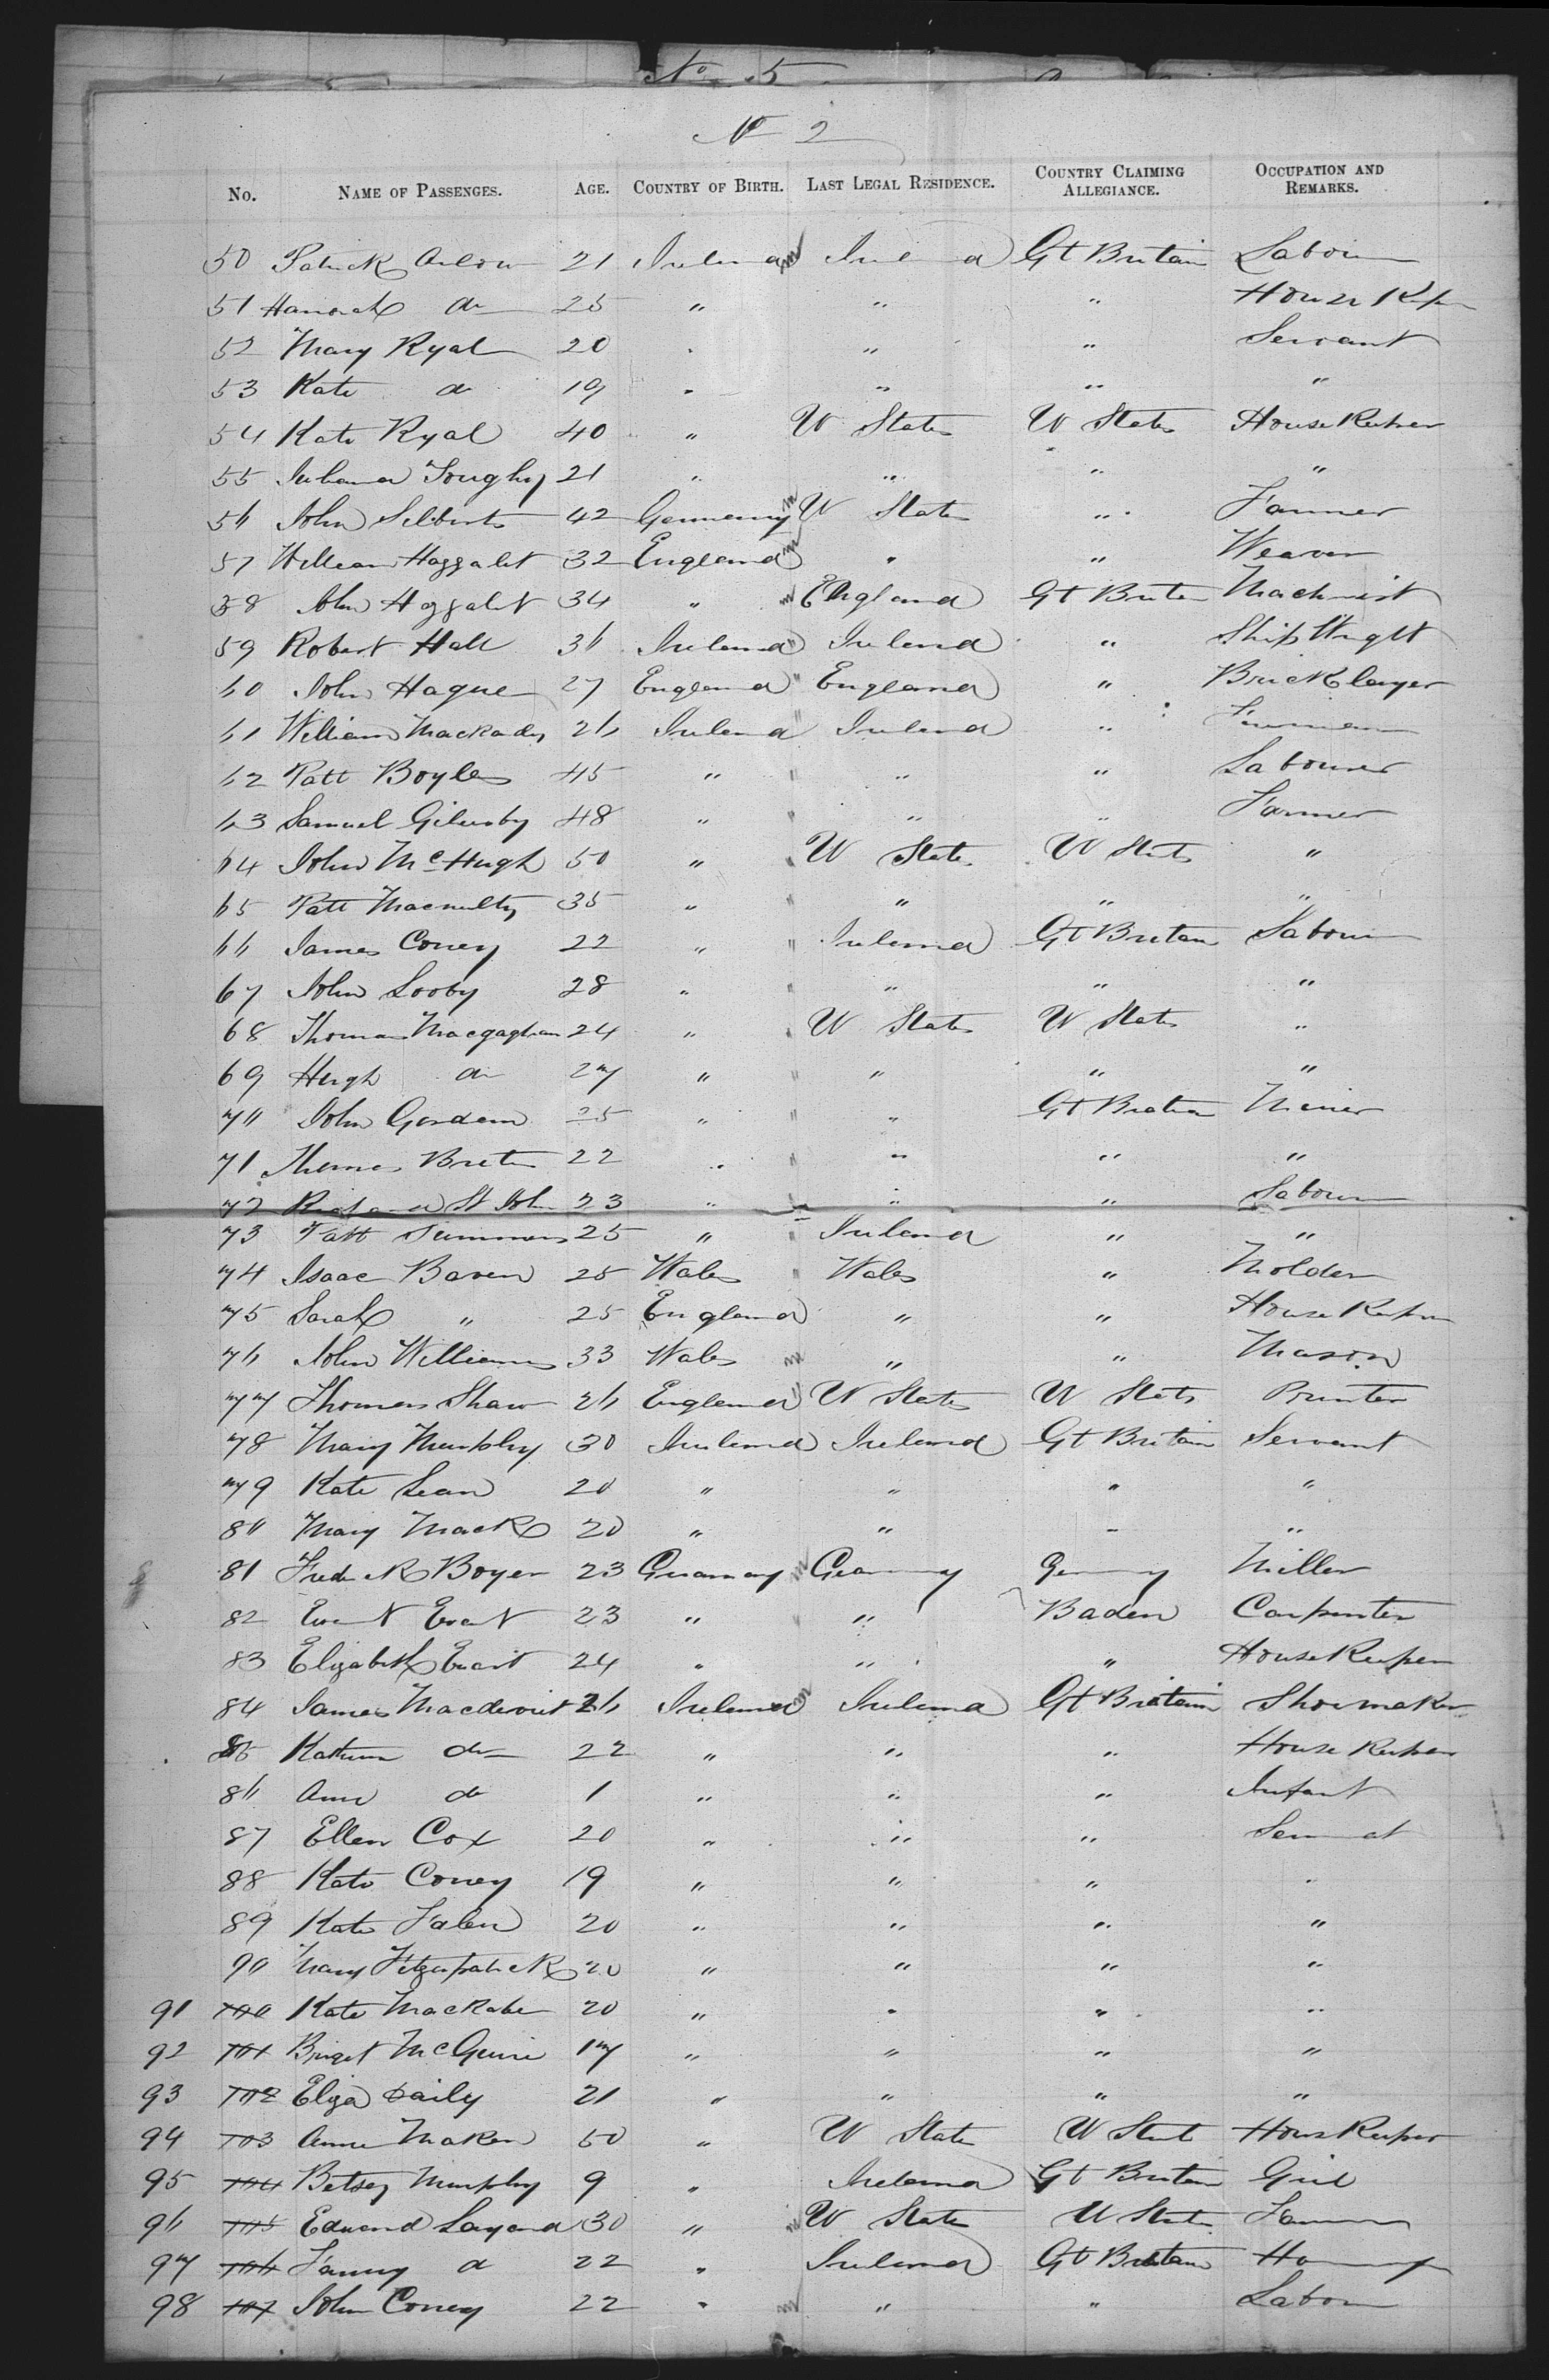 No 5
No 2
No. NAME OF PASSENGES. AGE. COUNTRY OF BIRTH. LAST LEGAL RESIDENCE. COUNTRY CLAIMING ALLEGIANCE. OCCUPATION AND REMARKS.
50 Patrick 21 Ireland Ireland Gt Britain Labourer
51 Hannah do 25 " " " House Keeper
52 Mary Ryal 20 " " " Servant
53 Kate do 19 " " " "
54 Kate Ryal 40 " U States U States House Keeper
55 Juhana 21 " " " "
56 John 42 Germany U States " Farmer
57 William Haggalet 32 England " " Weaver
58 John Haggalet 34 " England Gt Britn Machinist
59 Robert Hall 36 Ireland Ireland " Ship Wright
60 John Hague 27 England England " Bricklayer
61 William Mackady 26 Ireland Ireland "
62 Patt Boyle 45 " " " Labourer
63 Samuel 48 " " " Farmer
64 John McHugh 50 " U States U States "
65 Patt Macnulty 35 " " " "
66 James Coney 22 " Ireland Gt Britain Labourer
67 John Looby 28 " " " "
68 Thomas Macgaghan 24 " U States U States "
69 Hugh do 27 " " " "
70 John Gordam 25 " " Gt Britain Miner
71 Thomas 22 " " " "
72 Richard St John 23 " " " Labourer
73 Patt Summers 25 " Ireland " "
74 Isaac Baven 25 Wales Wales " Molder
75 Sarah " 25 England " " House Keeper
76 John Williams 33 Wales " " Mason
77 Thomas Shaw 26 England U States U States Printer
78 Mary Murphy 30 Ireland Ireland Gt Britain Servant
79 Kate Lean 20 " " " "
80 Mary Mack 20 " " " "
81 Fredrick Boyer 23 Germany Germany Germany Miller
82 23 " " Baden Carpenter
83 Elizabeth 24 " " " House Keeper
84 James Macdevitt 26 Ireland Ireland Gt Britain Shoemaker
85 do 22 " " " House Keeper
86 Ann do 1 " " " Infant
87 Ellen Cox 20 " " " Servant
88 Kate Coney 19 " " " "
89 Kate Falen 20 " " " "
90 Mary Fitzpatrick 20 " " " "
91 100 Kate Mackabe 20 " " " "
92 101 Briget McGuire 17 " " " "
93 102 Eliza Daily 21 " " " "
94 103 Anne Maken 50 " U States U States House Keeper
95 104 Betsey Murphy 9 " Ireland Gt Britain Girl
96 105 Edward Layand 30 " U States U States Farmer
97 106 Fanny do 22 " Ireland Gt Britain
98 107 John Coney 22 " " " Labourer